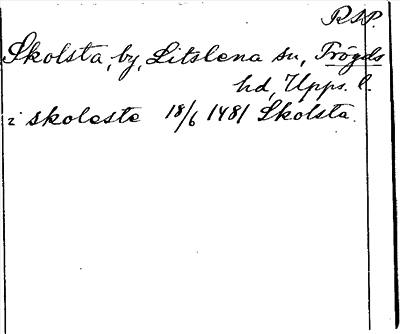 RSP.
Skolsta, by, Litslena sn, Trögds
hd, Upps. l.
i skoleste 18/6 1481 Skolsta.